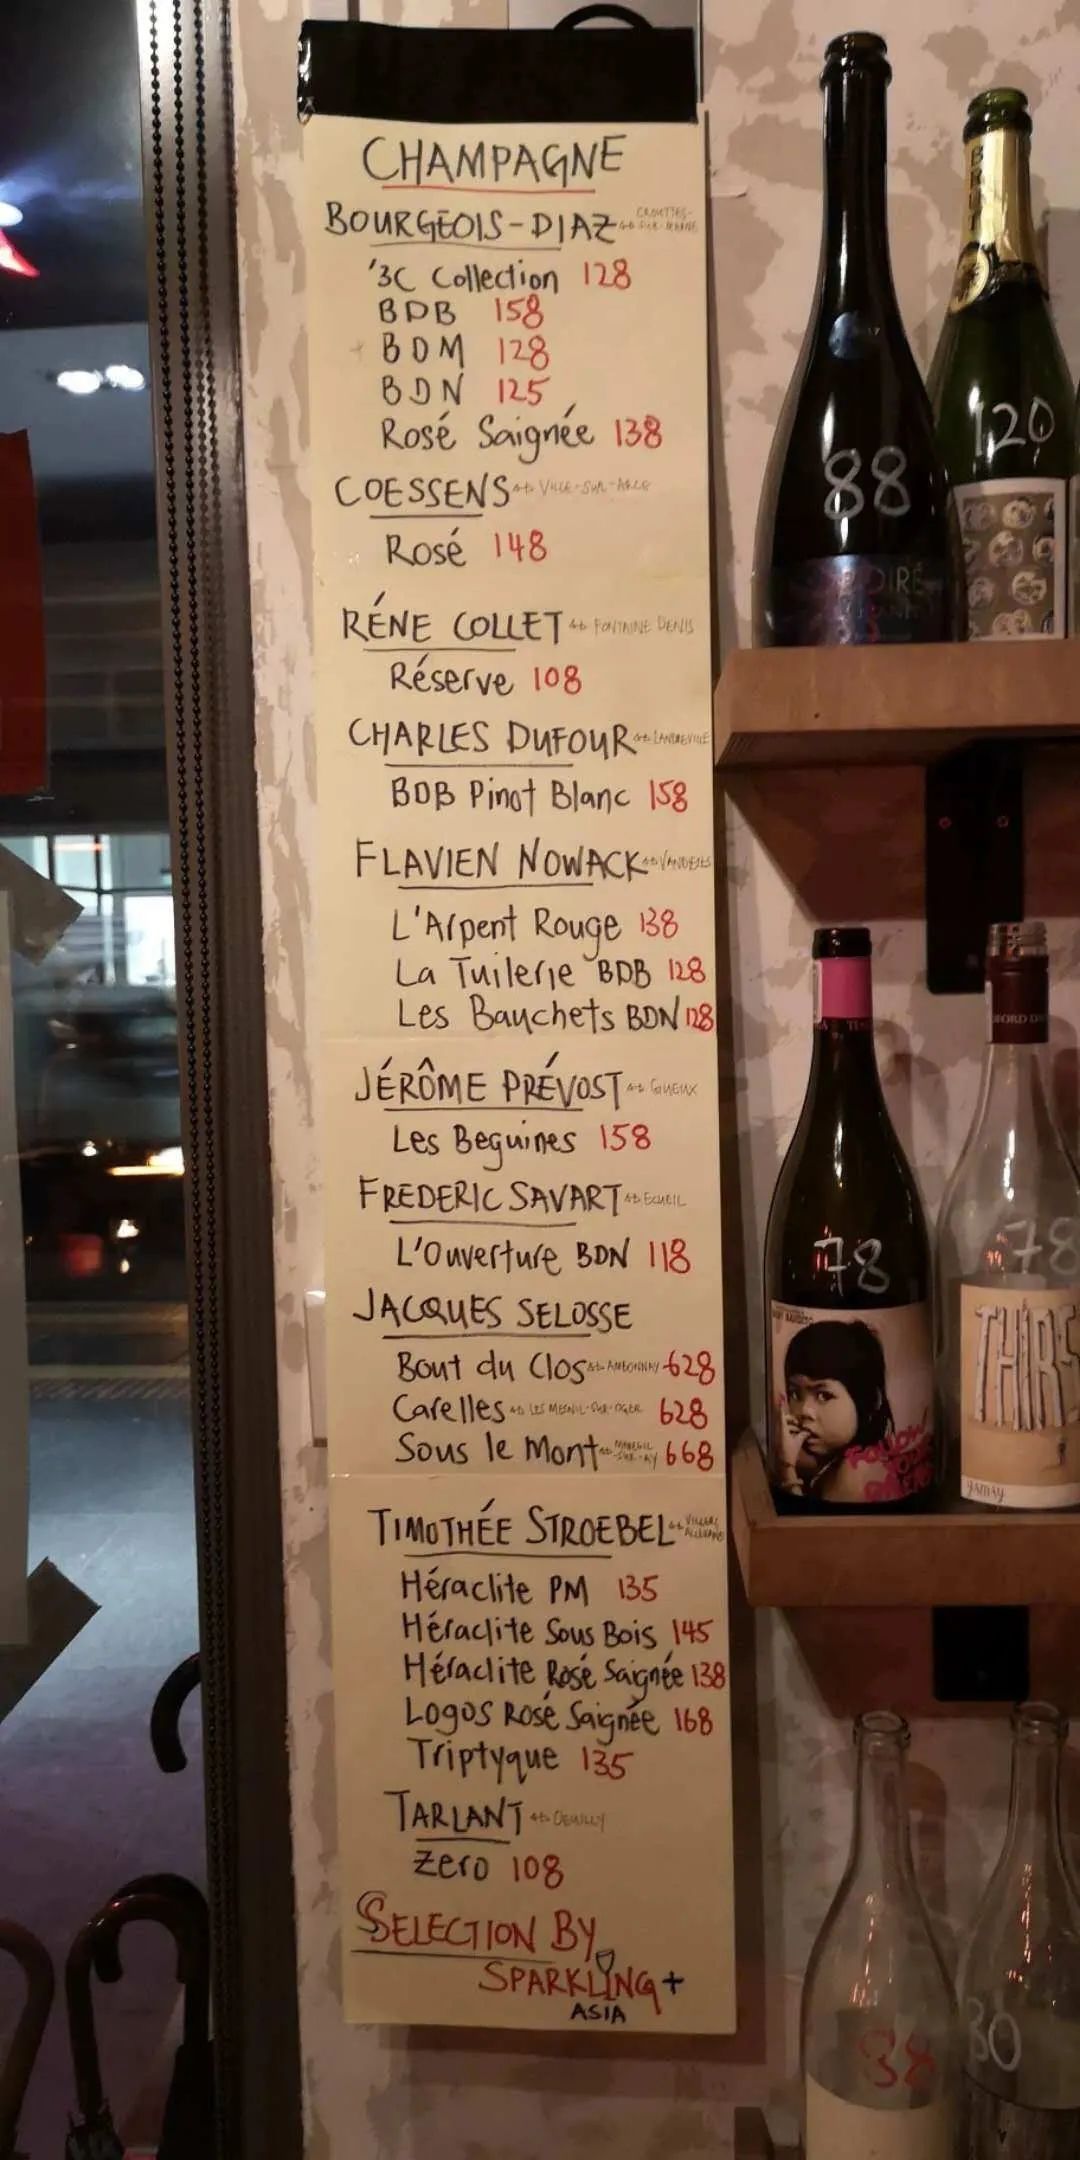 CHAMPAGNE
BOURGEOIS-DIAZ CROUTTES-
SUR-MARNE
'3C Collection 128
BDB 158
BDM 128
BDN 125
Rosé Saignée 138
COESSENS VILLE-SUR-ARCE
Rosé 148
RÉNE COLLET FONTAINE DENIS
Réserve 108
CHARLES DUFOUR LANDREVILLE
BDB Pinot Blanc 158
FLAVIEN NOWACK
L'Arpent Rouge 138
La Tuilerie BDB 128
Les Bauchets BDN 128
JÉRÔME PRÉVOST GUEUX
Les Beguines 158
FREDERIC SAVART ECUEIL
L'Ouverture BDN 118
JACQUES SELOSSE
Bout du Clos AMBONNAY 628
Carelles LES MESNIL-SUR-OGER 628
Sous le Mont MAREUIL
-SUR-AY 668
TIMOTHÉE STROEBEL VILLERS
ALLERAND
Héraclite PM 135
Héraclite Sous Bois 145
Héraclite Rosé Saignée 138
Logos Rosé Saignée 168
Triptyque 135
TARLANT OEUILLY
Zero 108
SELECTION BY
SPARKLING+
ASIA
BRUT
88
120
78
78
FOLLOW
THIRS
gamay
38
30